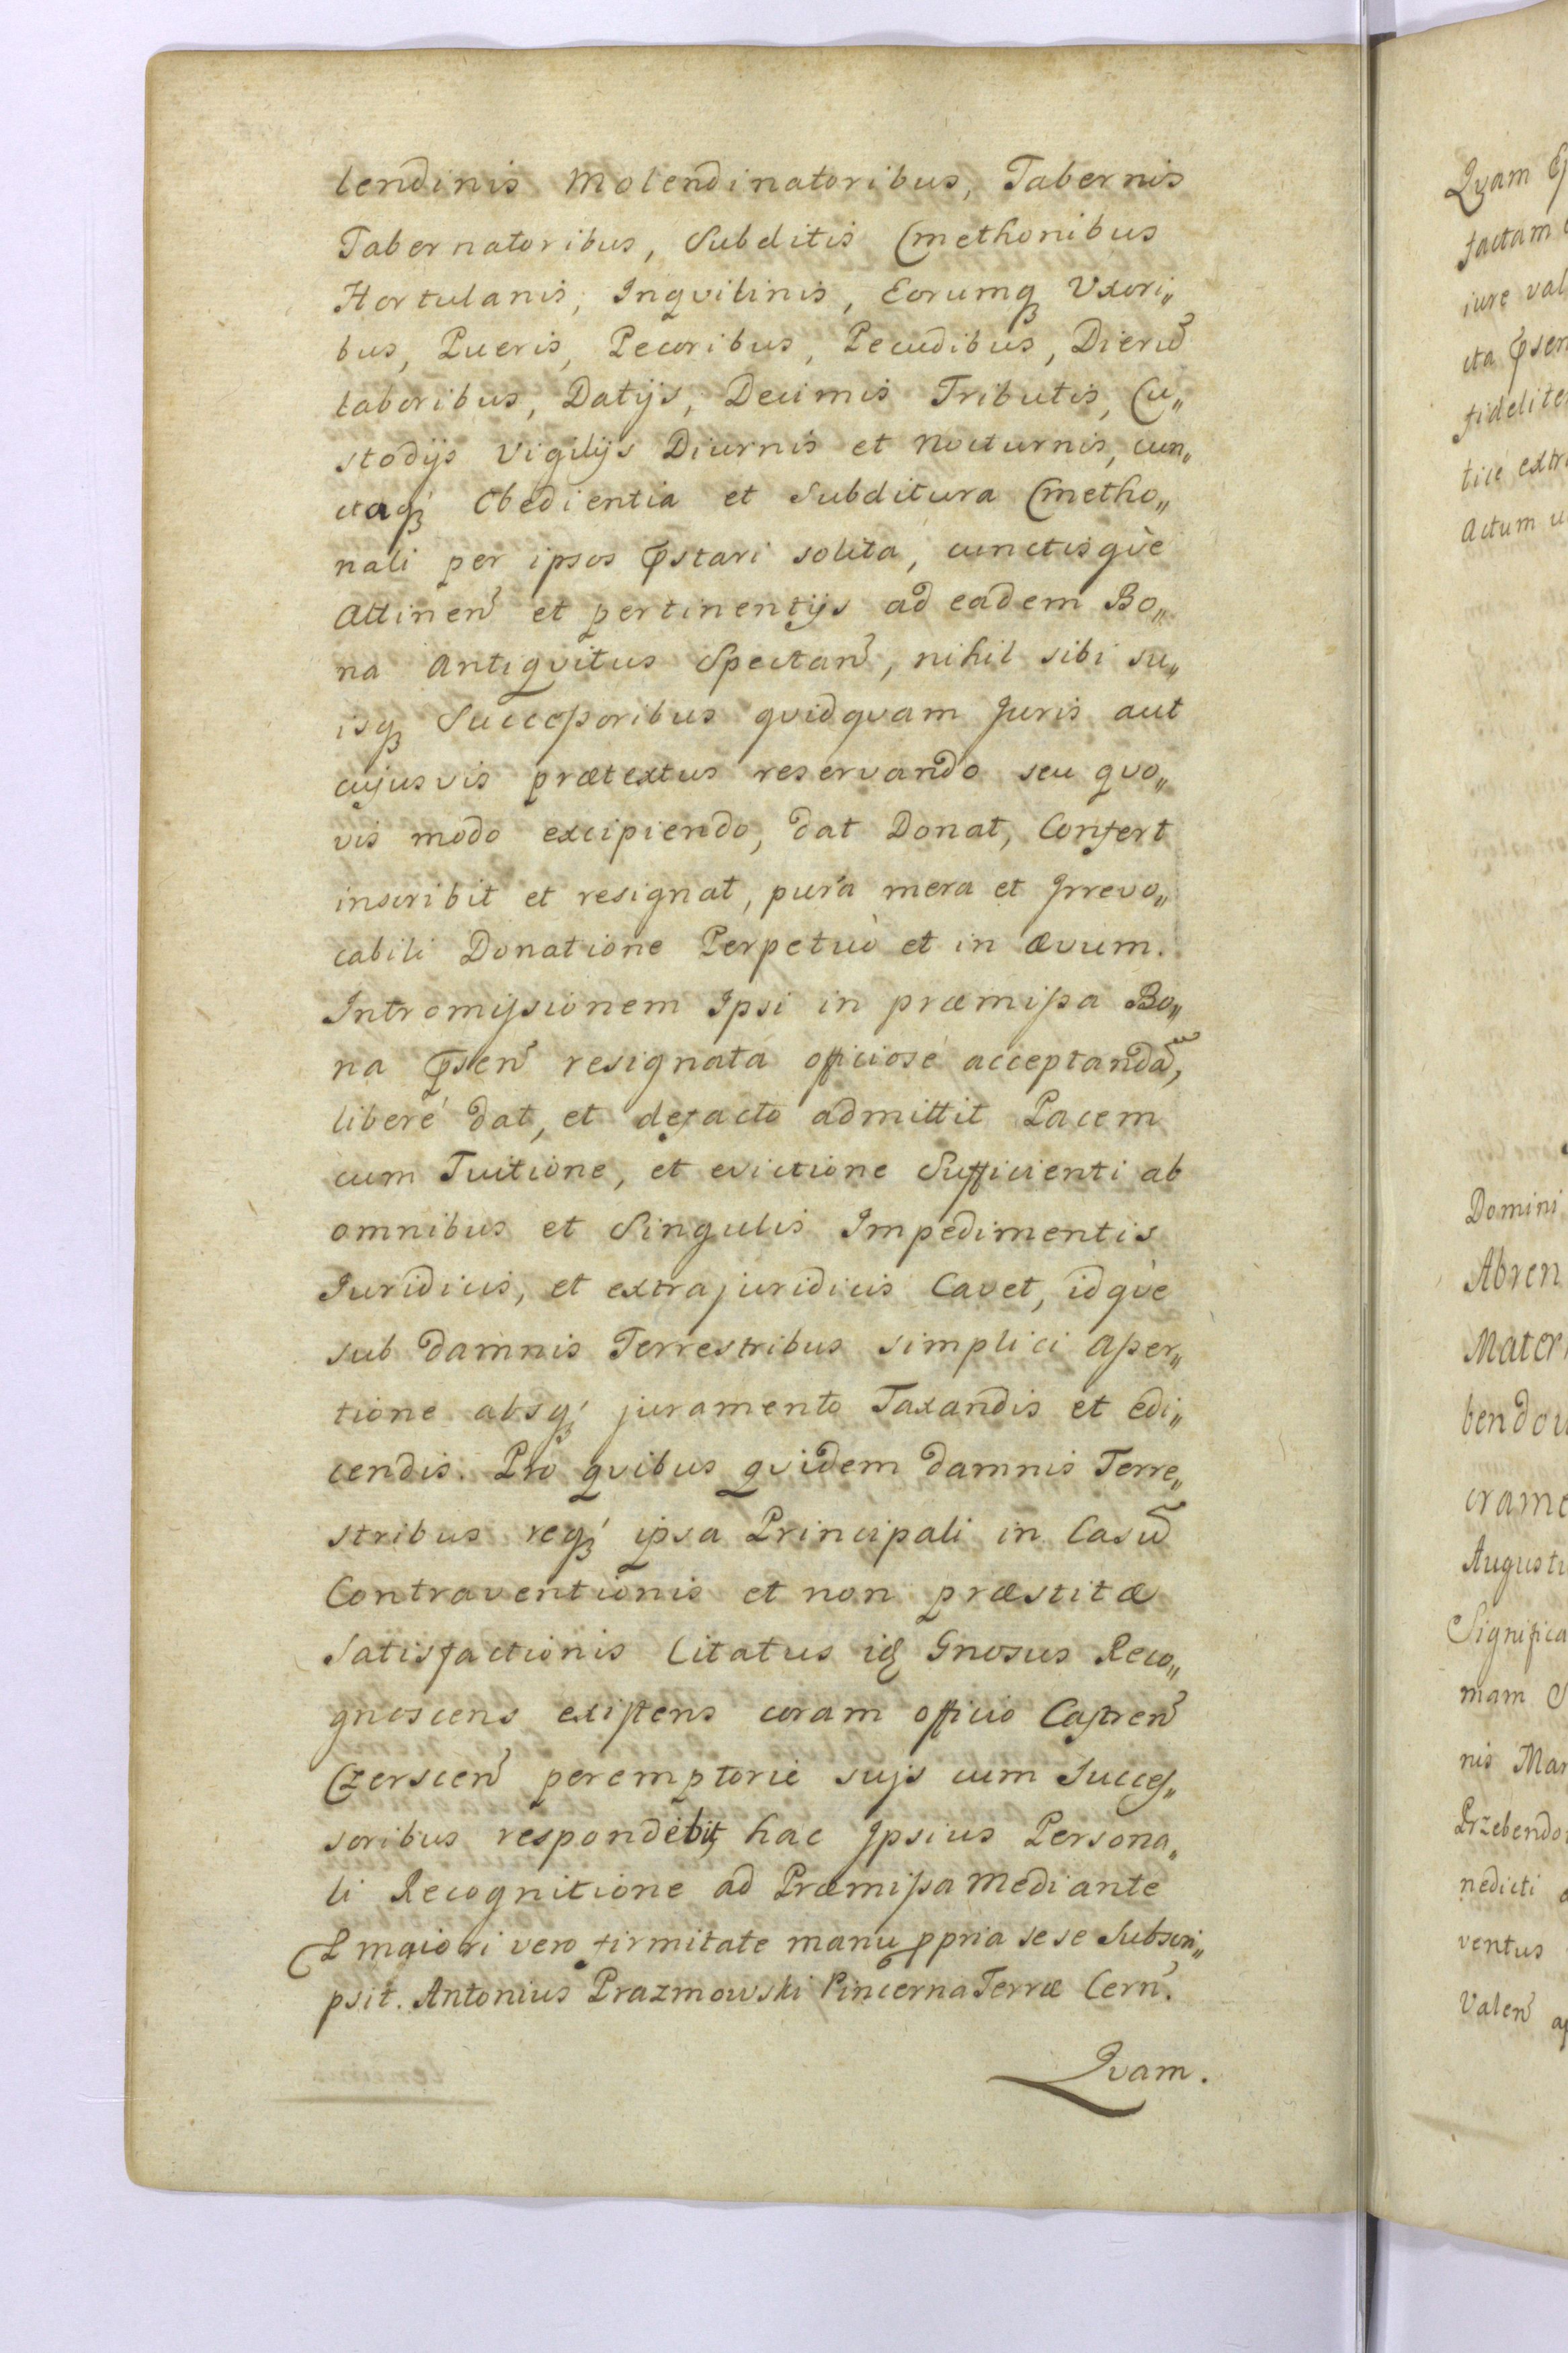 lendinis Molendinatoribus, Tabernis
Tabernatoribus, Subditis Cmethonibus
Hortulanis, Inqvilinis, Eorumqꝫ Uxori„
bus, Pueris, Pecoribus, Pecudibus, Dierū
laboribus, Datijs, Decimis Tributis, Cu„
stodijs Vigilijs Diurnis et Nocturnis, cun„
ctaqꝫ Obedientia et Subditura Cmetho„
nali per ipsos ꝓstari solita, cunctisqùe
Attineñ et pertinentijs ad eadem Bo„
na Antiqvitus Spectañ, nihil sibi su„
isqꝫ Successoribus qvidqvam Juris aut
cujusvis prætextus reservando seu qvo„
vis modo excipiendo, dat Donat, Confert
inscribit et resignat, pura mera et Irrevo„
cabili Donatione Perpetuò et in ævum.
Intromissionem Ipsi in præmissa Bo„
na ꝓseñ resignata officiosé acceptandã,
liberé dat, et defacto admittit Pacem
cum Tuitione, et evictione Sufficienti ab
omnibus et Singulis Impedimentis
Juridicis, et extrajuridicis Cavet, idqùe
sub damnis Terrestribus simplici Asser„
tione absqꝫ juramento Taxandis et edi„
cendis. Pro qvibus qvidem damnis Terre„
stribus reqꝫ ipsa Principali in Casũ
Contraventionis et non præstitæ
Satisfactionis Citatus idē Gnosus Reco„
gnoscens existens coram officio Castreñ
Czersceñ peremptorie suis cum Succes„
soribus respondebit, hac Ipsius Persona„
li Recognitione ad Præmissa Mediante
Et maiori vero firmitate manu ꝓpria sese Subscri„
psit. Antonius Prazmowski Pincerna Terræ Cerñ.
Qvam.
Qvam
factam
iure val
cta ꝓsen
fidelite
tice extr
Actum
Domini
Abren
Mater
bendow
crame
Augusti
Significa
mam S
nis Mar
Przebendo
nedicti
ventus
Valeñ